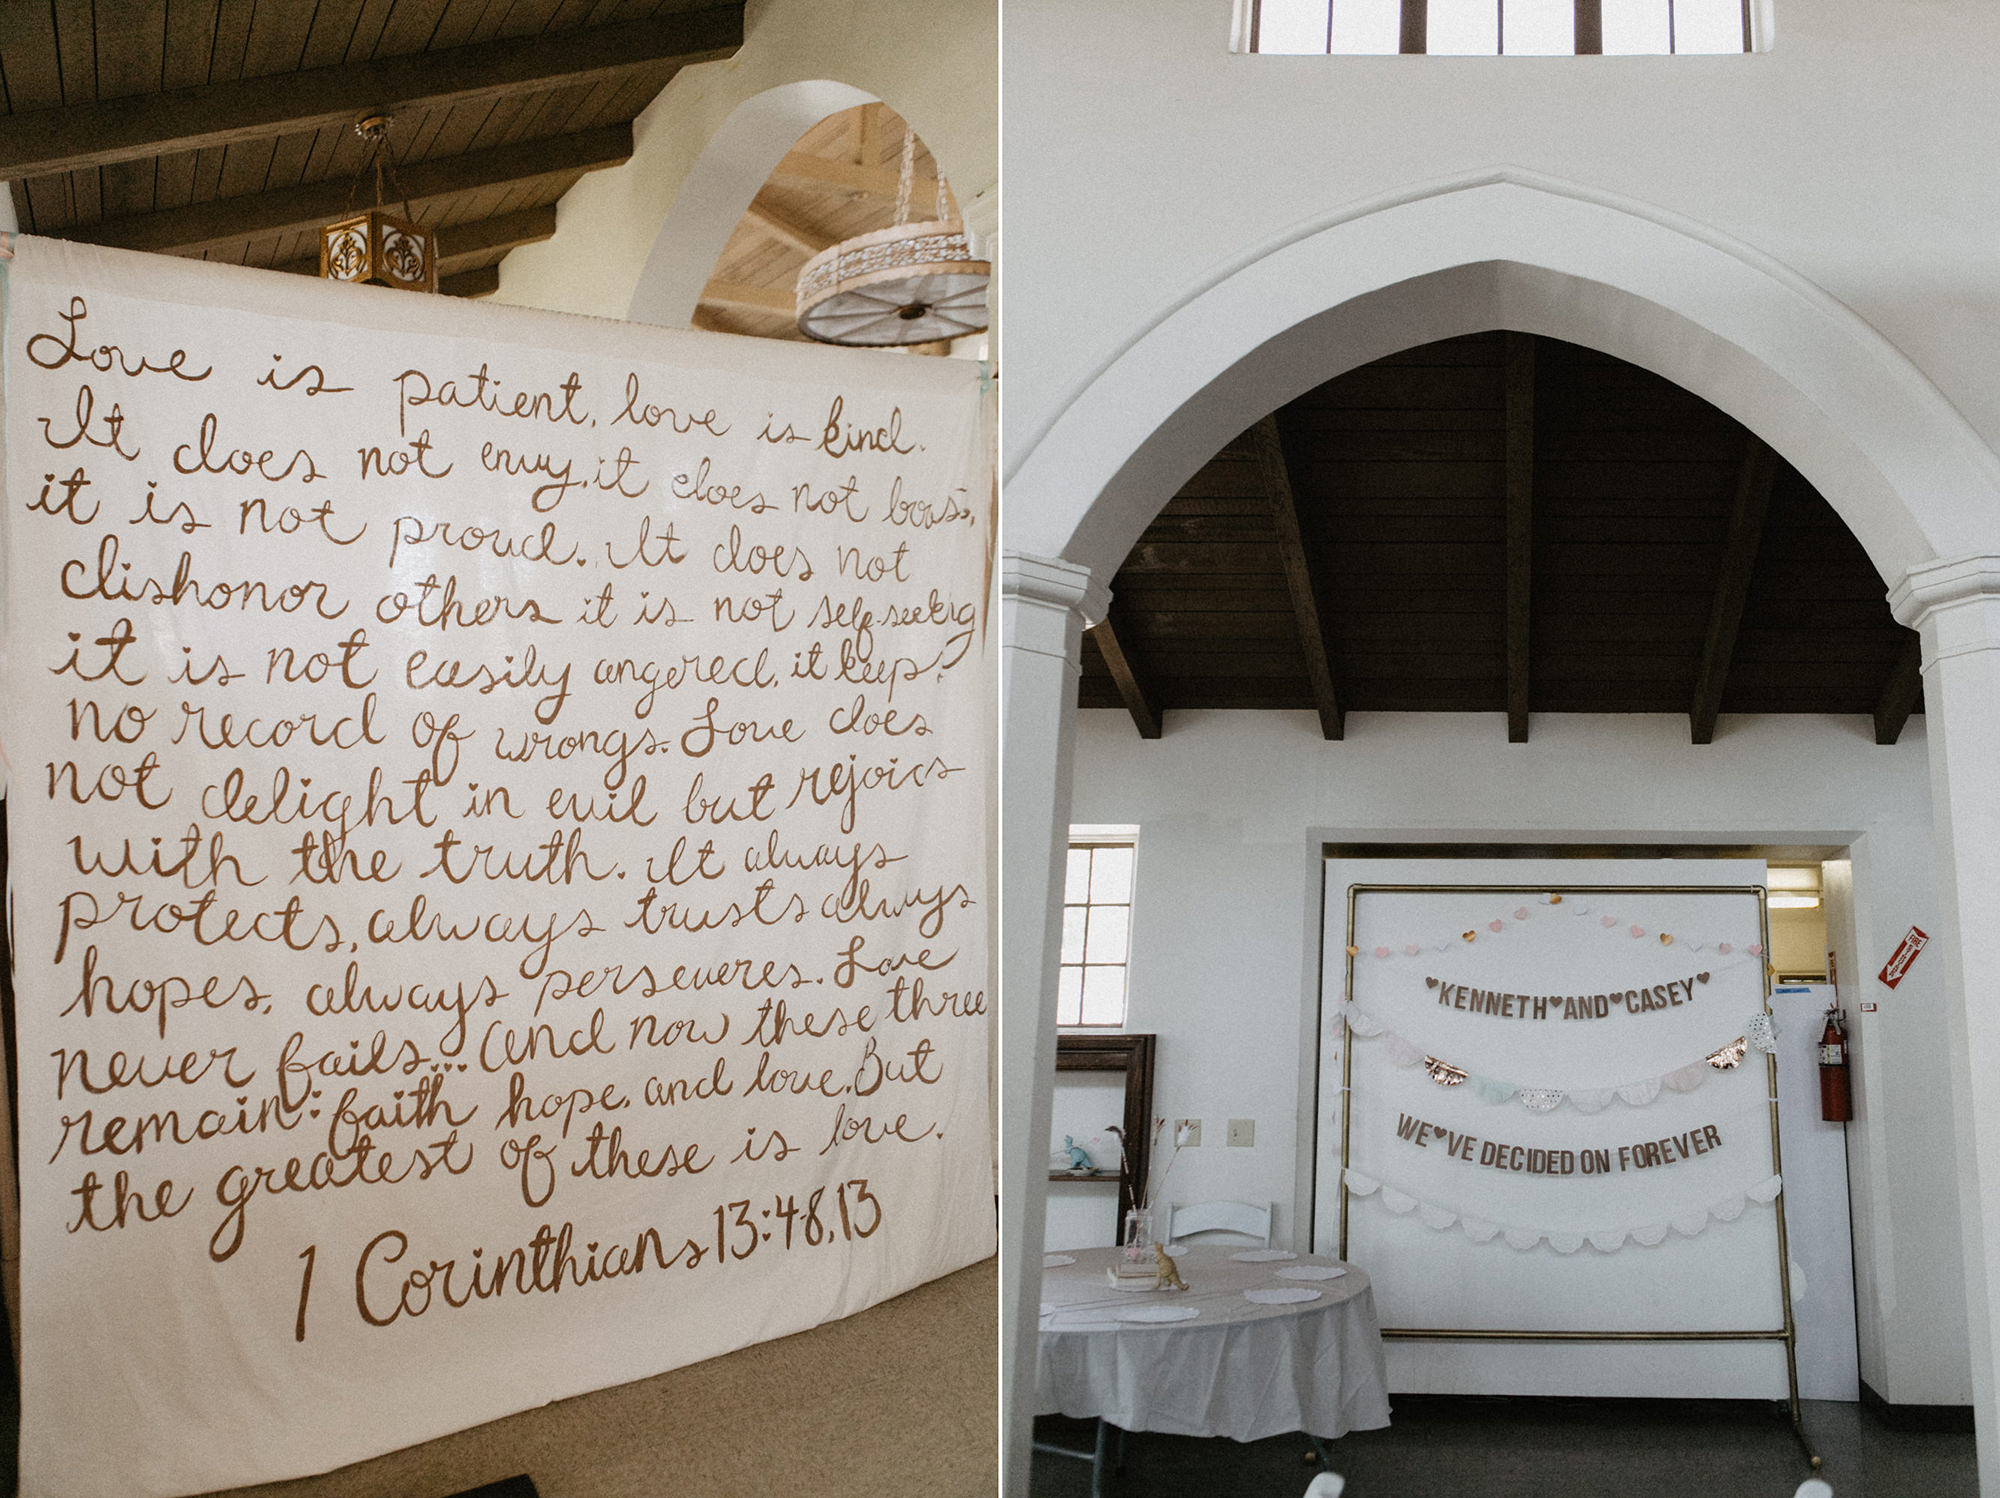 Love is patient, love is kind.
It does not envy, it does not boast,
it is not proud. It does not
dishonor others it is not self-seeking
it is not easily angered, it keeps
no record of wrongs. Love does
not delight in evil but rejoices
with the truth. It always
protects, always trusts always
hopes, always perseveres. Love
never fails... and now these three
remain: faith hope, and love. But
the greatest of these is love.
1 Corinthians 13:4-8, 13
KENNETH AND CASEY
WE'VE DECIDED ON FOREVER
FIRE